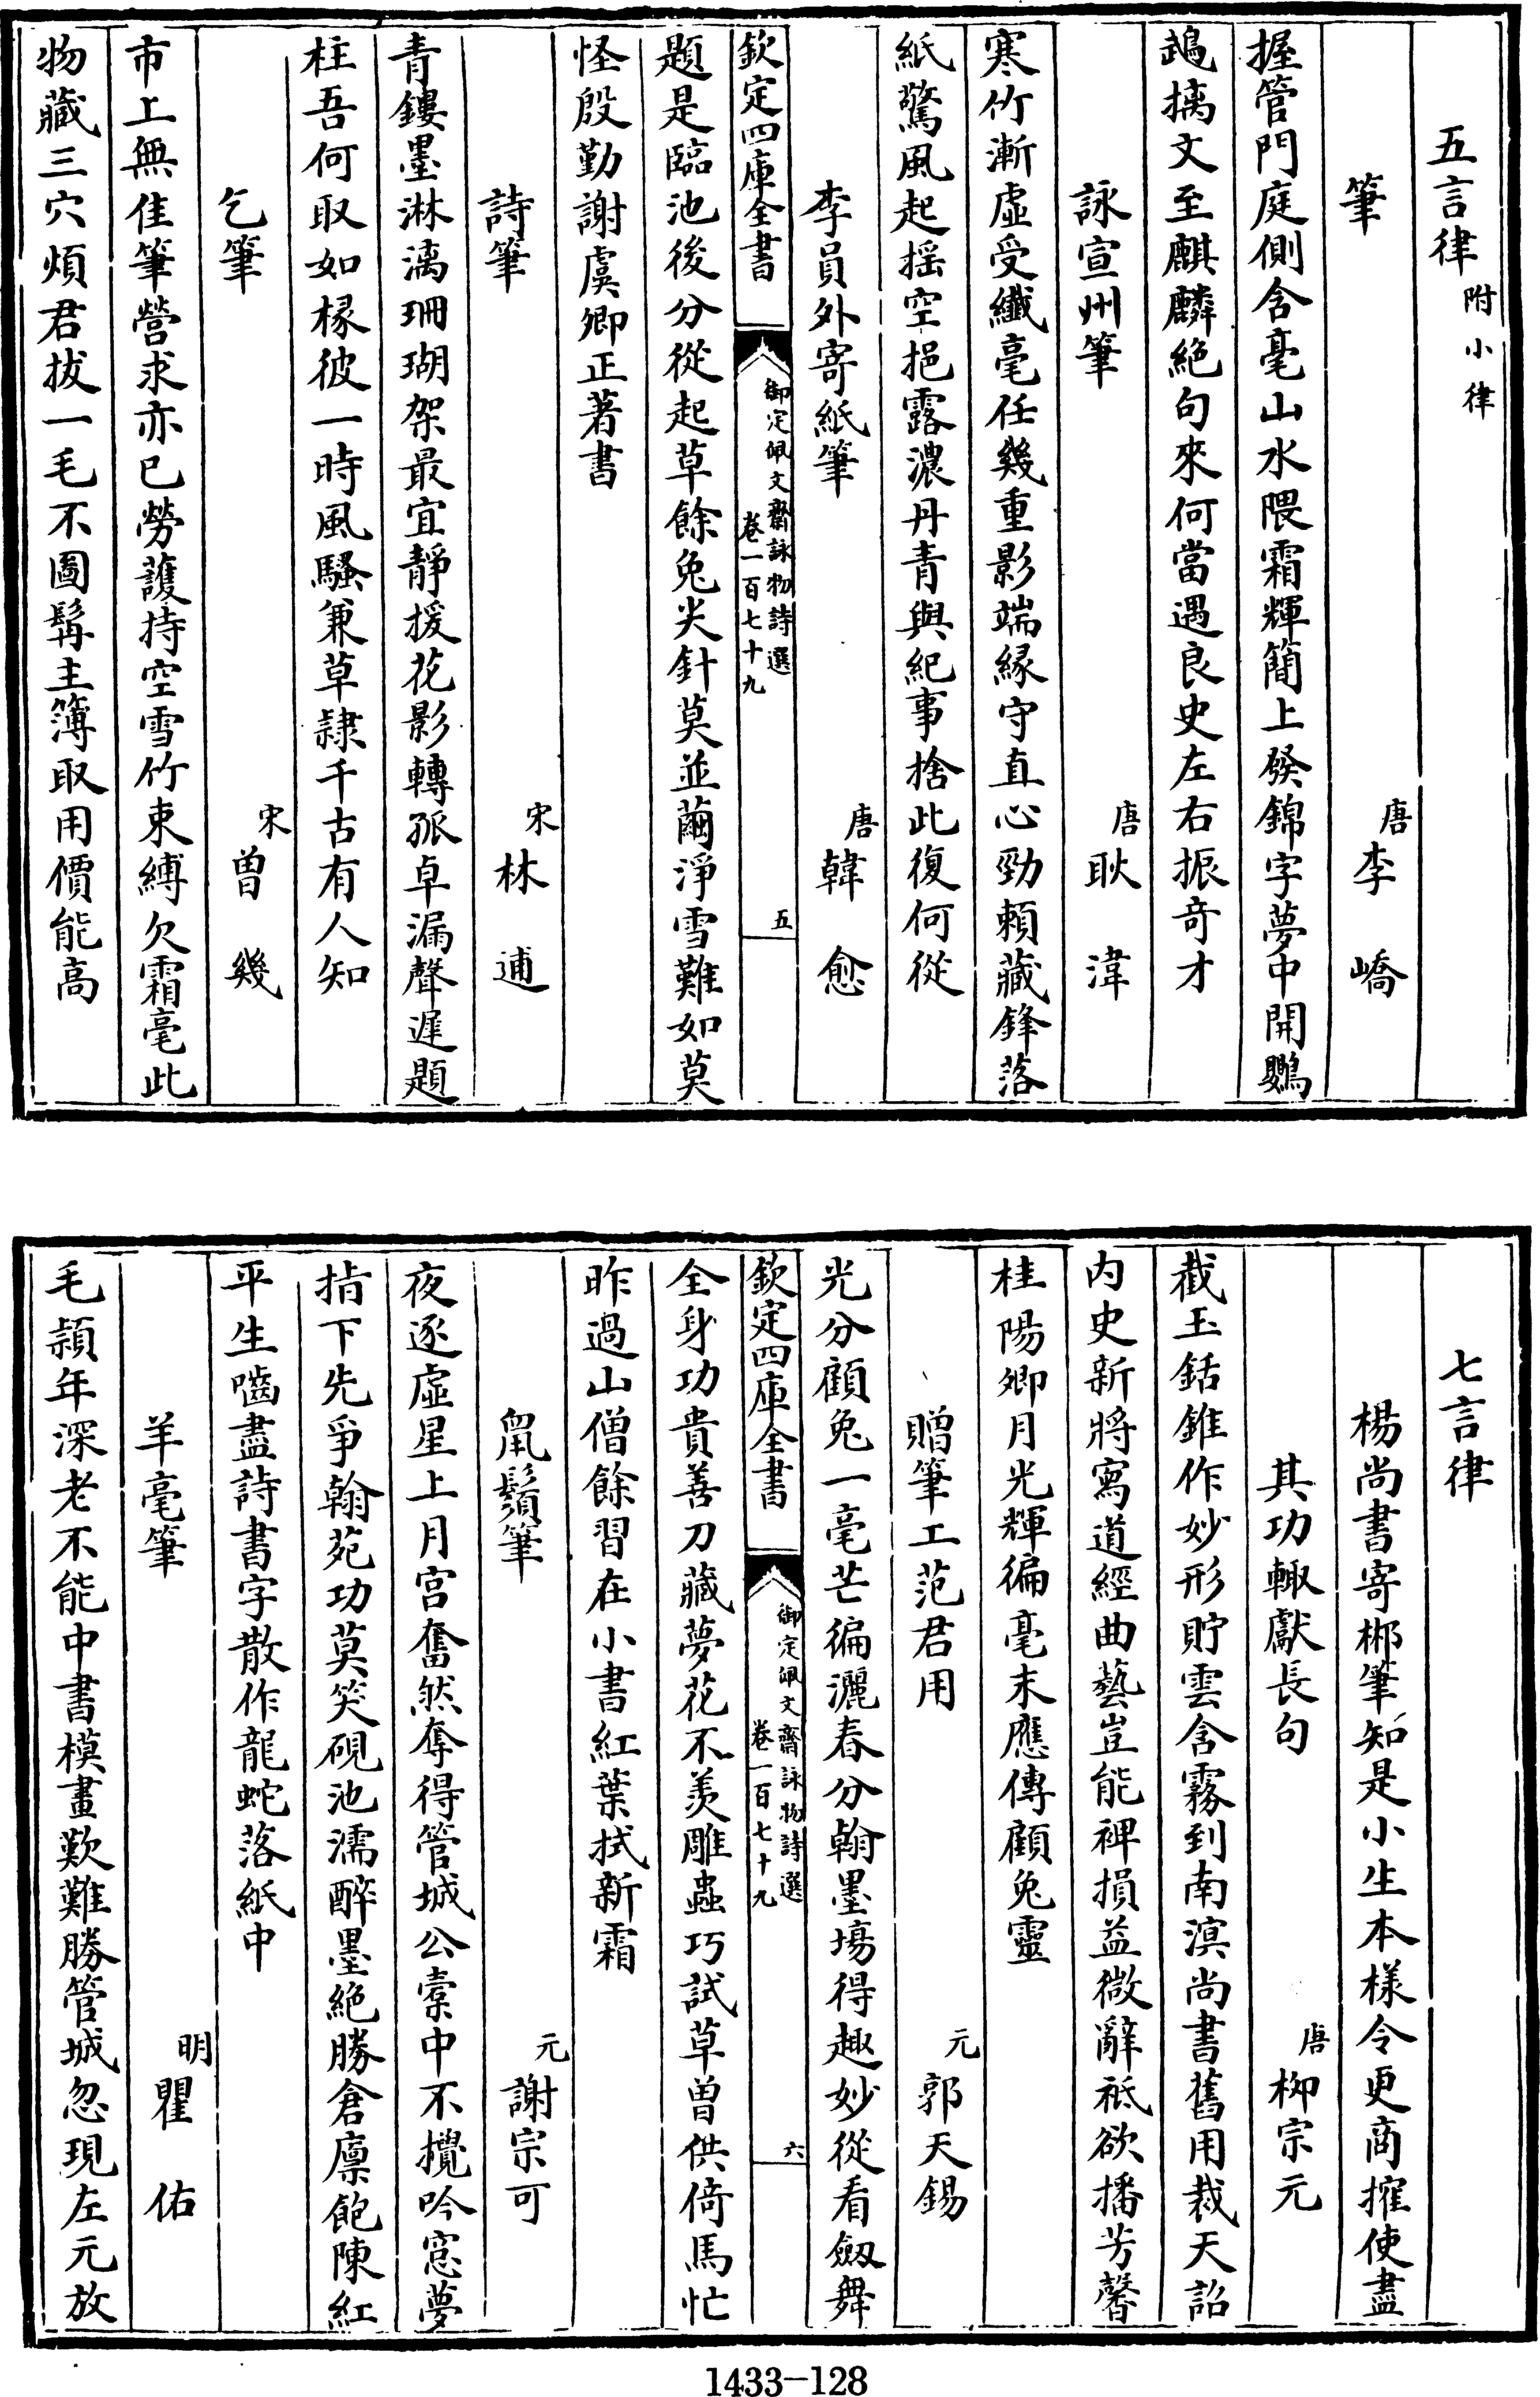 五言律附小律
筆　唐李嶠
握管門庭側含毫山水隈霜輝簡上發錦字夢中開鸚
鵡摛文至麒麟絕句來何當遇良史左右振奇才
詠宣州筆　唐耿湋
寒竹漸虛受纖毫任幾重影端緣守直心勁賴藏鋒落
紙驚風起揺空挹露濃丹青與紀事捨此復何從
李員外寄紙筆　唐韓愈
欽定四庫全書　御定佩文齋詠物詩選卷一百七十九　五
題是臨池後分從起草餘兔尖針莫並繭淨雪難如莫
怪殷勤謝虞卿正著書
詩筆　宋林逋
青鏤墨淋漓珊瑚架最宜靜援花影轉孤卓漏聲遲題
柱吾何取如椽彼一時風騷兼草隷千古有人知
乞筆　宋曾幾
市上無佳筆營求亦已勞䕶持空雪竹束縛欠霜毫此
物藏三穴煩君拔一毛不圖髯主簿取用價能高
七言律
楊尚書寄郴筆知是小生本様令更商搉使盡
其功輙獻長句　唐柳宗元
截玉銛錐作妙形貯雲含霧到南溟尚書舊用裁天詔
内史新將寫道經曲藝豈能裨損益微辭祗欲播芳馨
桂陽卿月光輝徧毫末應傳顧兔靈
贈筆工范君用　元郭天錫
光分顧兔一毫芒徧灑春分翰墨塲得趣妙從看劔舞
欽定四庫全書　御定佩文齋詠物詩選卷一百七十九　六
全身功貴善刀藏夢花不羨雕蟲巧試草曽供倚馬忙
昨過山僧餘習在小書紅葉拭新霜
䑕鬚筆　元謝宗可
夜逐虛星上月宫奮然奪得管城公槖中不攪吟窓夢
指下先爭翰苑功莫笑硯池濡醉墨絶勝倉廩飽陳紅
平生嚙盡詩書字散作龍蛇落紙中
羊毫筆　明瞿佑
毛頴年深老不能中書模畫歎難勝管城忽現左元放
1433-128